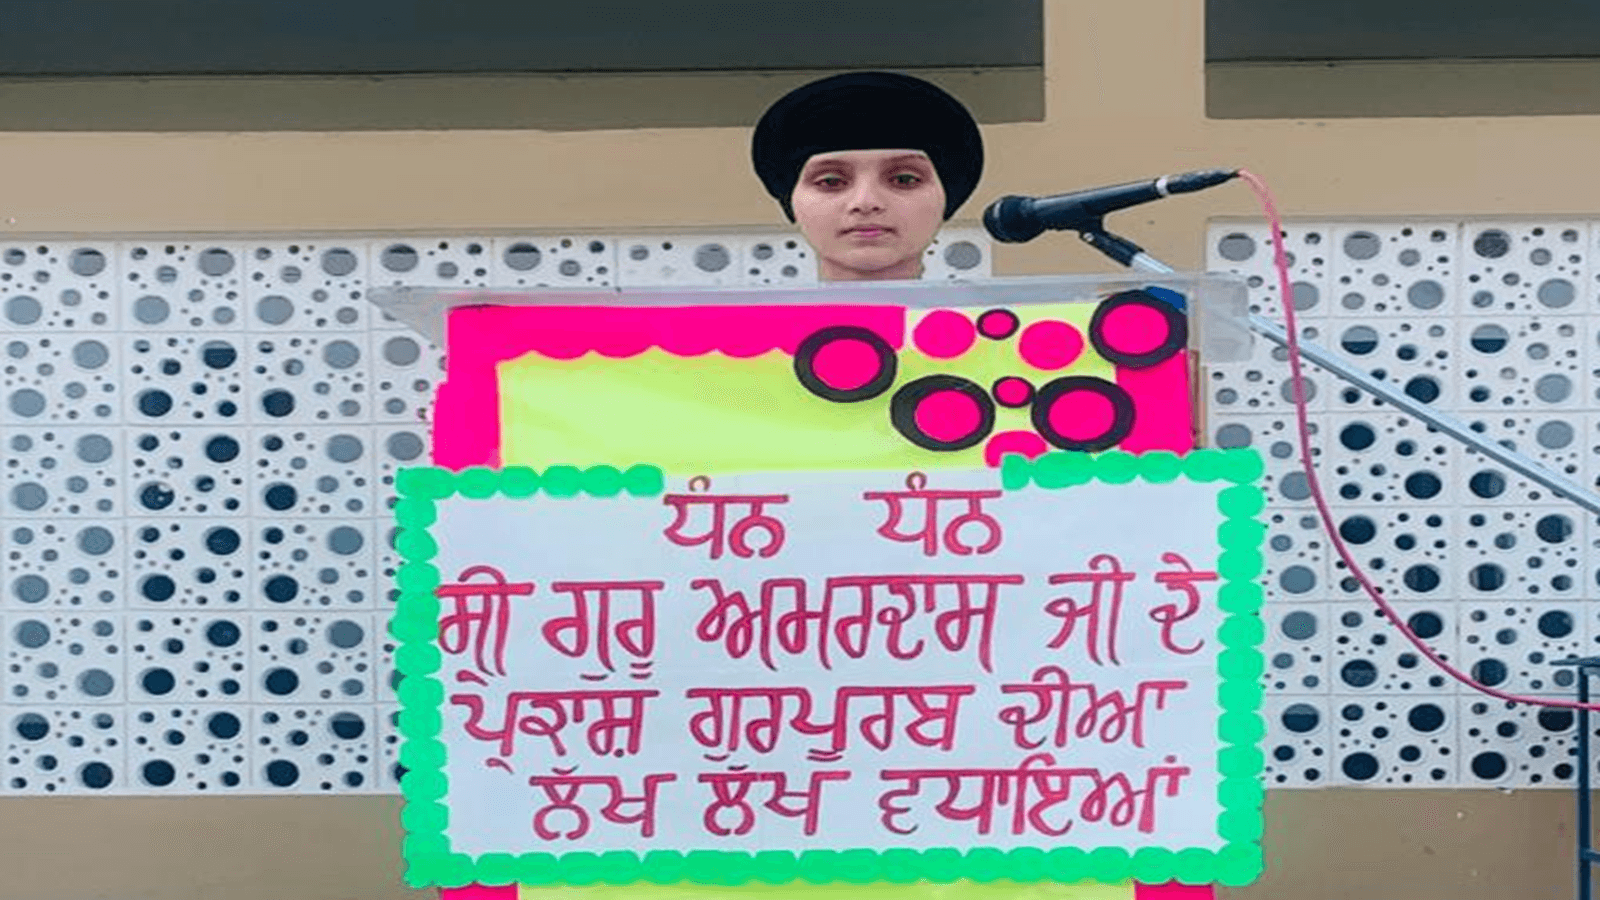 ਧੰਨ ਧੰਨ
ਸ੍ਰੀ ਗੁਰੂ ਅਮਰਦਾਸ ਜੀ ਦੇ
ਪ੍ਰਕਾਸ਼ ਗੁਰਪੂਰਬ ਦੀਆ
ਲੱਖ ਲੱਖ ਵਧਾਇਆਂ